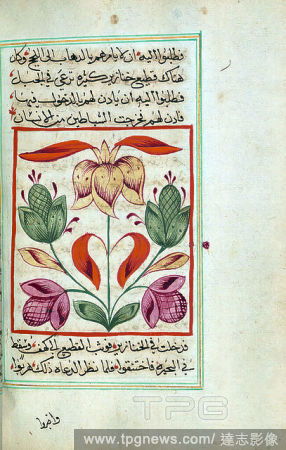 فطلبوا اليه ان لا يامرهم بالذهاب الى اللجج وكان
هناك قطيع خنازير كثيرة ترعى في الجبل
فطلبوا اليه ان ياذن لهم بالدخول فيها
فاذن لهم فخرجت الشياطين من الانسان
ودخلت في الخنازير فوثب القطيع الى الجرف وسقط
في البحيرة فاختنقوا فلما نظر الرعاه ذلك هربوا
واخبروا
TPG
www.tpgnews.com / 達志影像